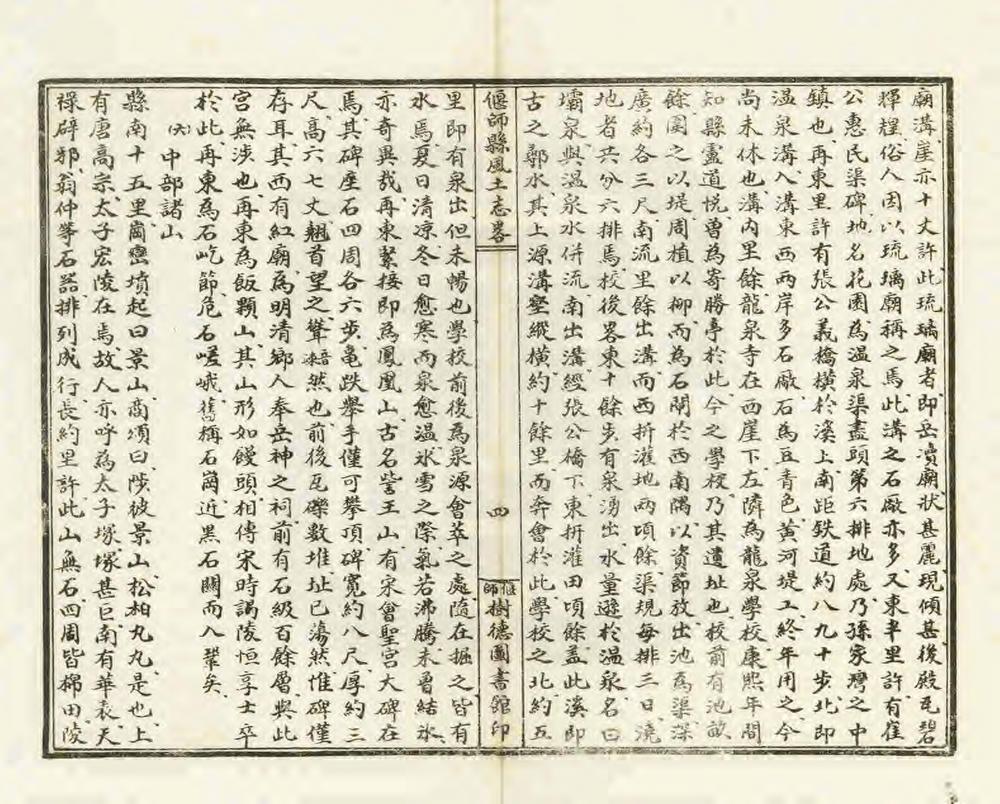 廟溝崖亦十丈許此琉璃廟者即岳瀆廟狀甚麗現傾甚後殿瓦碧
輝煌俗人因以琉璃廟稱之焉此溝之石廠亦多又東半里許有崔
公惠民渠碑地名花園為温泉渠盡頭第六排地處乃孫家灣之中
鎮也再東里許有張公義橋橫於溪上南距鉄道約八九十步北即
温泉溝入溝東西兩岸多石廠石為豆青色黃河堤工終年用之今
尚未休也溝內里餘龍泉寺在西崖下左隣為龍泉學校康熙年間
知縣盧道悦曾為寄勝亭於此今之學校乃其遺址也校前有池畝
餘園之以堤周植以柳而為石閘於西南隅以資節放出池為渠深
廣約各三尺南流里餘出溝而西折灌地兩頃餘渠規每排三日澆
地者共分六排焉校後畧東十餘步有泉湧出水量遜於温泉名曰
壩泉與温泉水併流南出溝經張公橋下東折灌田頃餘盖此溪即
古之鄩水其上源溝壑縱橫約十餘里而奔會於此學校之北約五
偃師縣風土志畧
四
偃師樹德圖書館印
里即有泉出但未暢也學校前後為泉源會萃之處隨在掘之皆有
水焉夏日清凉冬日愈寒而泉愈温氷雪之際氣若沸騰未曾結氷
亦奇異哉再東緊接即為鳳凰山古名訾王山有宋會聖宮大碑在
焉其碑座石四周各六步龜趺舉手僅可攀頂碑寬約八尺厚約三
尺高六七丈翹首望之聳然也前後瓦礫数堆址已蕩然惟碑僅
存耳其西有紅廟為明清鄉人奉岳神之祠前有石級百餘層與此
宮無涉也再東為飯顆山其山形如饅頭相傳宋時謁陵恒享士卒
於此再東為石屹節危石嵯峨舊稱石崗近黑石關而入鞏矣
㈥中部諸山
縣南十五里崗巒墳起曰景山商頌曰陟彼景山松柏丸丸是也上
有唐高宗太子宏陵在焉故人亦呼為太子塚塚甚巨南有華表天
祿辟邪翁仲等石器排列成行長約里許此山無石四周皆棉田陵